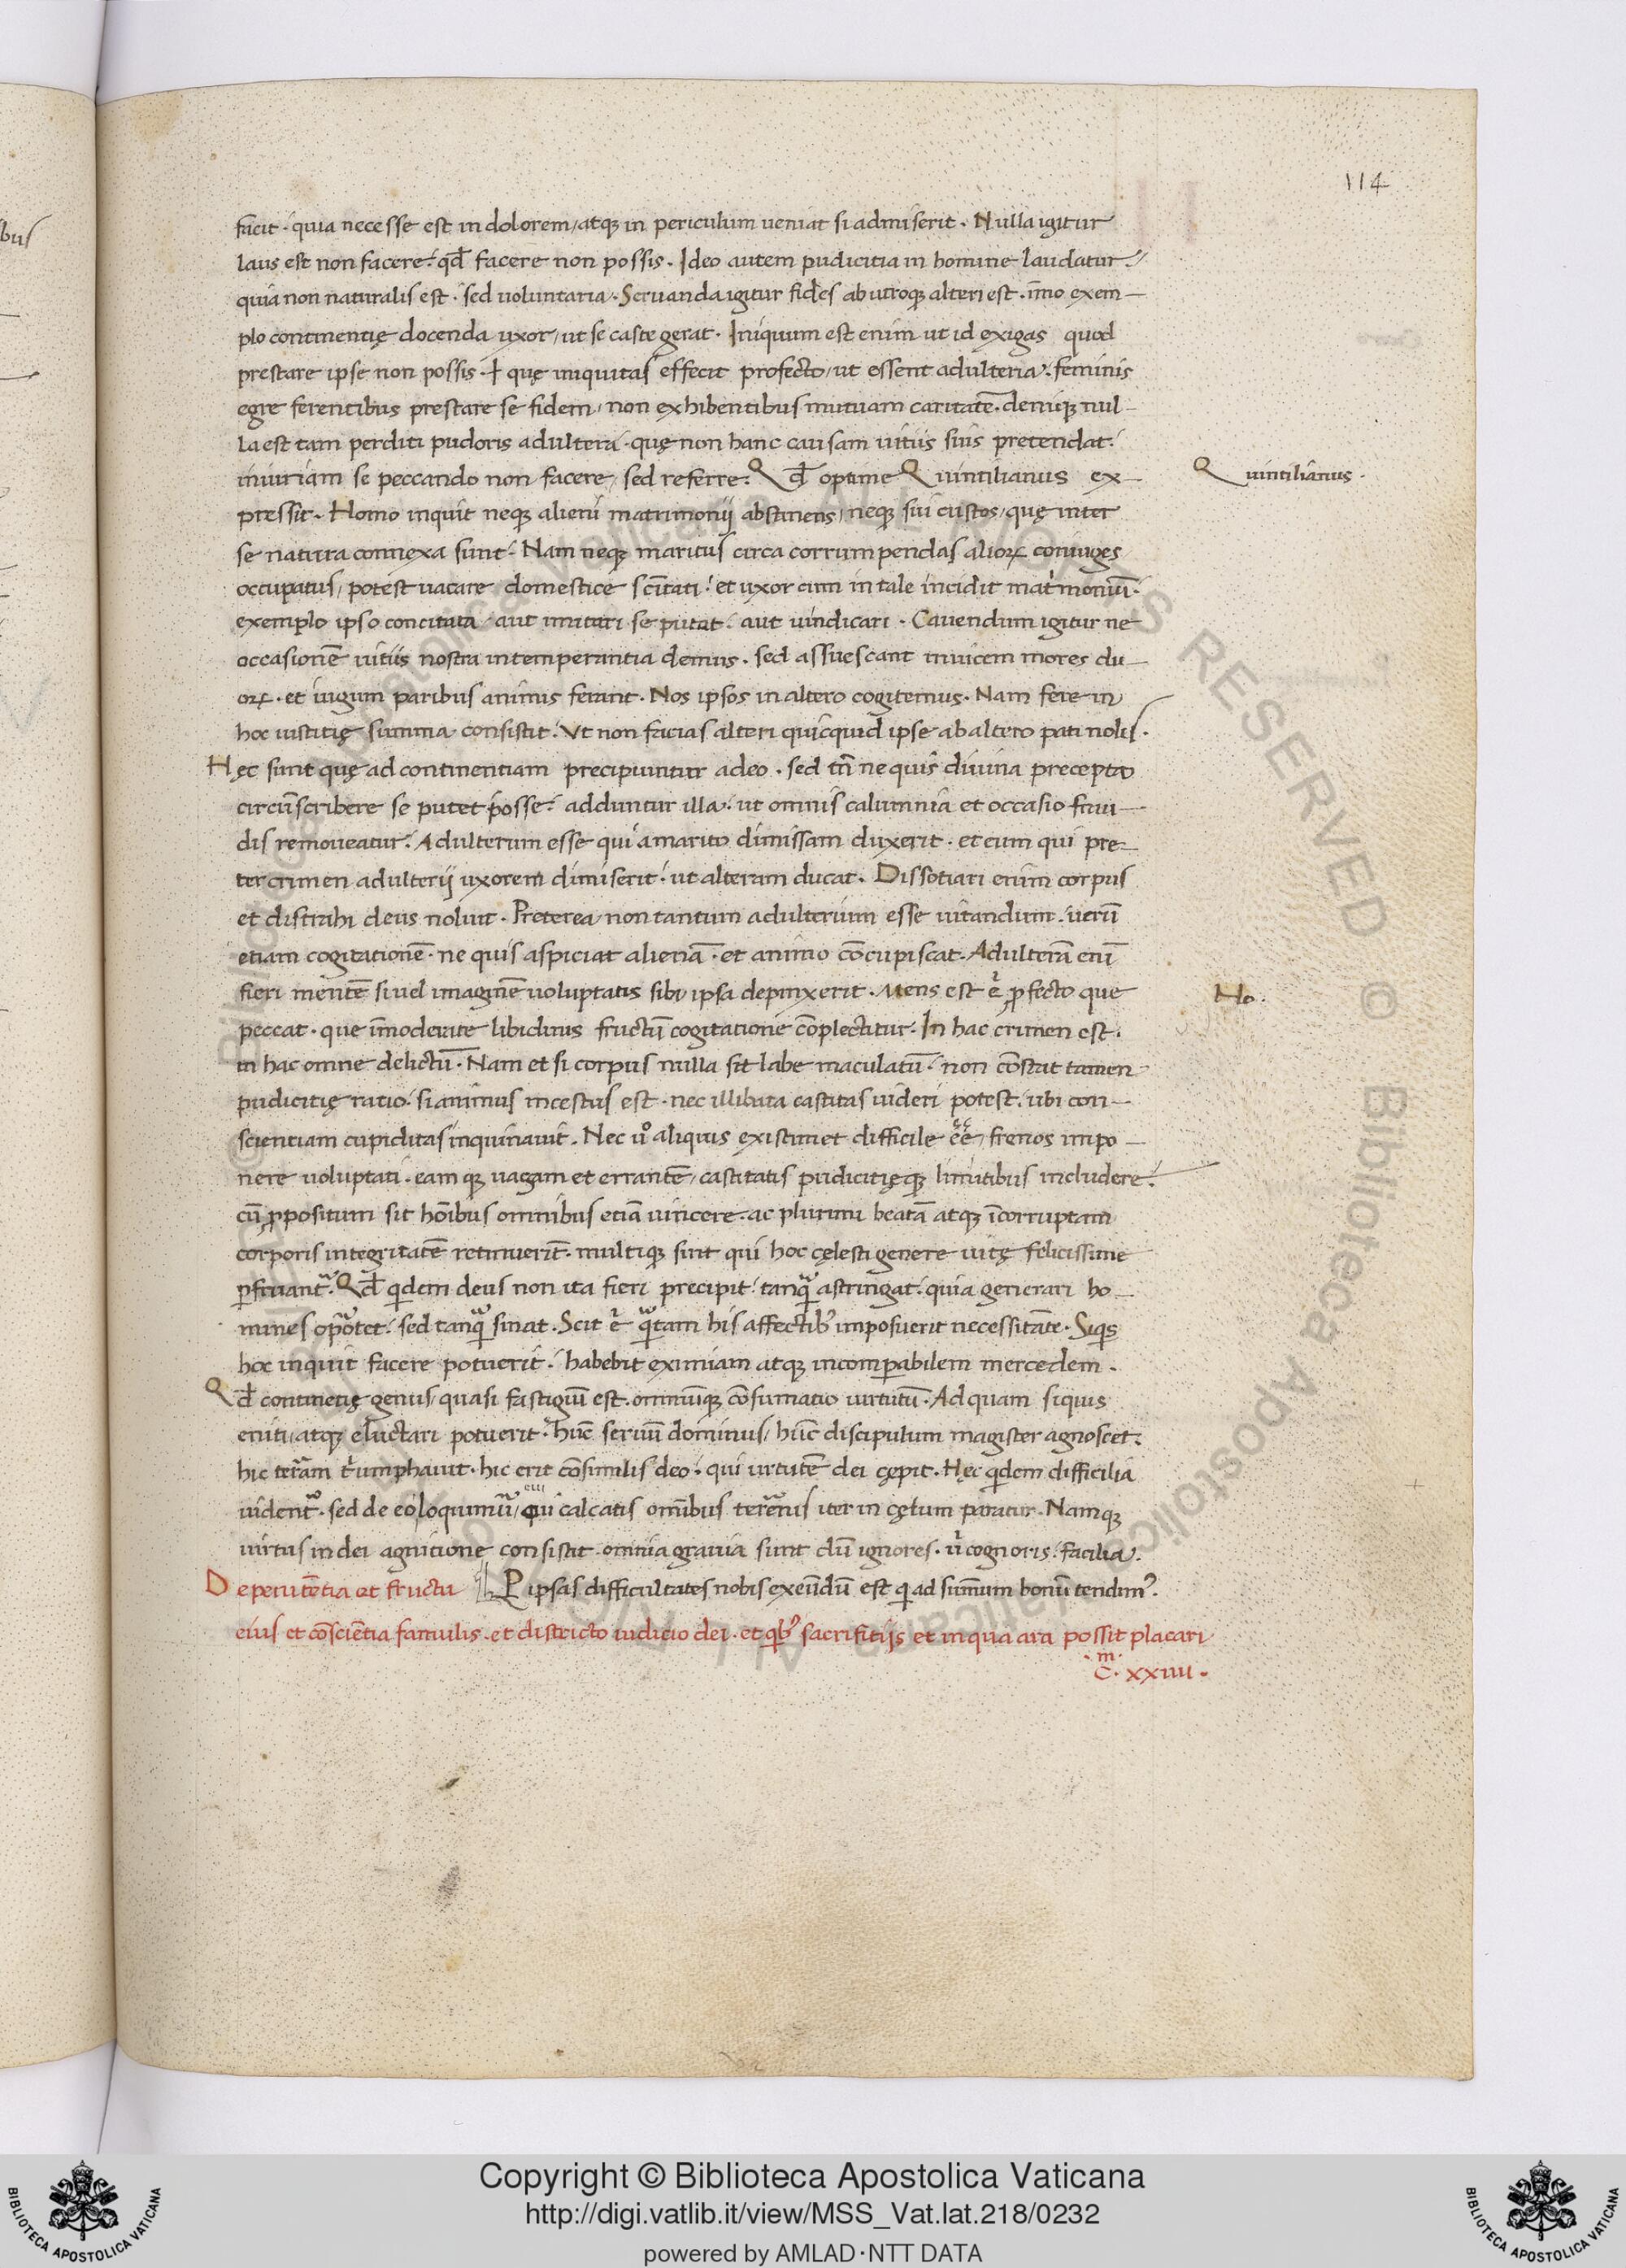 114
facit · quia necesse est in dolorem, atq; in periculum ueniat si admiserit · Nulla igitur
laus est non facere : qđ facere non possis · Ideo autem pudicitia in homine laudatur :
quia non naturalis est · sed uoluntaria · Seruanda igitur fides ab utroq; alteri est · īmo exem—
plo continentię docenda uxor, ut se caste gerat · Iniquum est enim ut id exigas quod
prestare ipse non possis · ł quę iniquitas effecit profecto, ut essent adulteria : feminis
egre ferentibus prestare se fidem, non exhibentibus mutuam caritatē · deniq; nul—
la est tam perditi pudoris adultera · quę non hanc causam uitiis suis pretendat :
iniuriam se peccando non facere, sed referre : Qđ optime Quintilianus ex—
Quintilianus ·
pressit · Homo inquit neq; alieni matrimonij abstinens, neq; sui custos, quę inter
se natura connexa sunt · Nam neq; maritus circa corrumpendas alioꝝ coniuges
occupatus, potest uacare domestice sc̄titati : et uxor cum in tale incidit matͥmoniū ·
exemplo ipso concitata, aut imitari se putat : aut uindicari · Cauendum igitur ne
occasionē uitiis nostra intemperantia demus · sed assuescant inuicem mores du—
oꝝ · et iugum paribus animis ferant · Nos ipsos in altero cogitemus · Nam fere in
hoc iustitię summa consistit : Vt non facias alteri quicquid ipse ab altero pati nolis ·
Hęc sunt quę ad continentiam precipiuntur a deo · sed tn̄ ne quis diuina precepta
circūscribere se putet posse : adduntur illa : ut omnis calumnia et occasio frau—
dis remoueatur : Adulterum esse qui a marito dimissam duxerit · et eum qui pre—
ter crimen adulterij uxorem dimiserit : ut alteram ducat · Dissotiari enim corpus
et distrahi deus noluit · Preterea, non tantum adulterium esse uitandum · uerū
etiam cogitationē · ne quis aspiciat alienā · et animo cōcupiscat · Adulterā enī
fieri mentē si uel imaginē uoluptatis sibi ipsa depinxerit · Mens est .n. ꝓfecto que
No ·
peccat · que īmoderate libidinis fructū cogitatione cōplectitur · In hac crimen est ·
in hac omne delictū · Nam et si corpus nulla sit labe maculatū · non cōstat tamen
pudicitię ratio · si animus incestus est · nec illibata castitas uideri potest · ubi con—
scientiam cupiditas inquinauit · Nec uͦ aliquis existimet difficile eē, frenos impo—
nere uoluptati · eam q; uagam et errantē, castitatis pudicitięq; limitibus includere :
cū ꝓpositum sit hoībus omnibus etiā uincere · ac plurimi beatā atq; īcorruptam
corporis integritatē retinuerīt · multiq; sint qui hoc cęlesti genere uitę felicissime
ꝑfruant᷑ · Qđ qͥdem deus non ita fieri precipit · tanqᷓ astringat · quia generari ho—
mines oportet · sed tanqᷓ sinat · Scit .n. qᷓtam his affectibꝰ imposuerit necessitāte · Siqͥs
hoc inquit facere potuerit : habebit eximiam atq; incomꝑabilem mercedem ·
Qđ continētię genus, quasi fastigiū est · omniūq; cōsumatio uirtutū · Ad quam siquis
eniti, atq; eluctari potuerit · hūc seruū dominus, hūc discipulum magister agnoscet ·
hic terram tͥumphauit · hic erit cōsimilis deo · qui uirtutē dei cępit · Hęc qͥdem difficilia
uident᷑ · sed de eo loquimur, cui calcatis omībus terrenis iter in cęlum paratur · Namq;
uirtus in dei agnitione consistit · omnia grauia sunt dū ignores · uͥ cognoris · facilia ·
De penitētia et fructu ꝑ ipsas difficultates nobis exeūdū est qͥ ad sūmum bonū tendimꝰ ·
eius et cōsciētia famulis · et districto iudicio dei · et qͥbꝰ sacrifitijs et in qua ara possit placari
· cᵐ · xxiiii ·
Copyright © Biblioteca Apostolica Vaticana
http://digi.vatlib.it/view/MSS_Vat.lat.218/0232
powered by AMLAD·NTT DATA